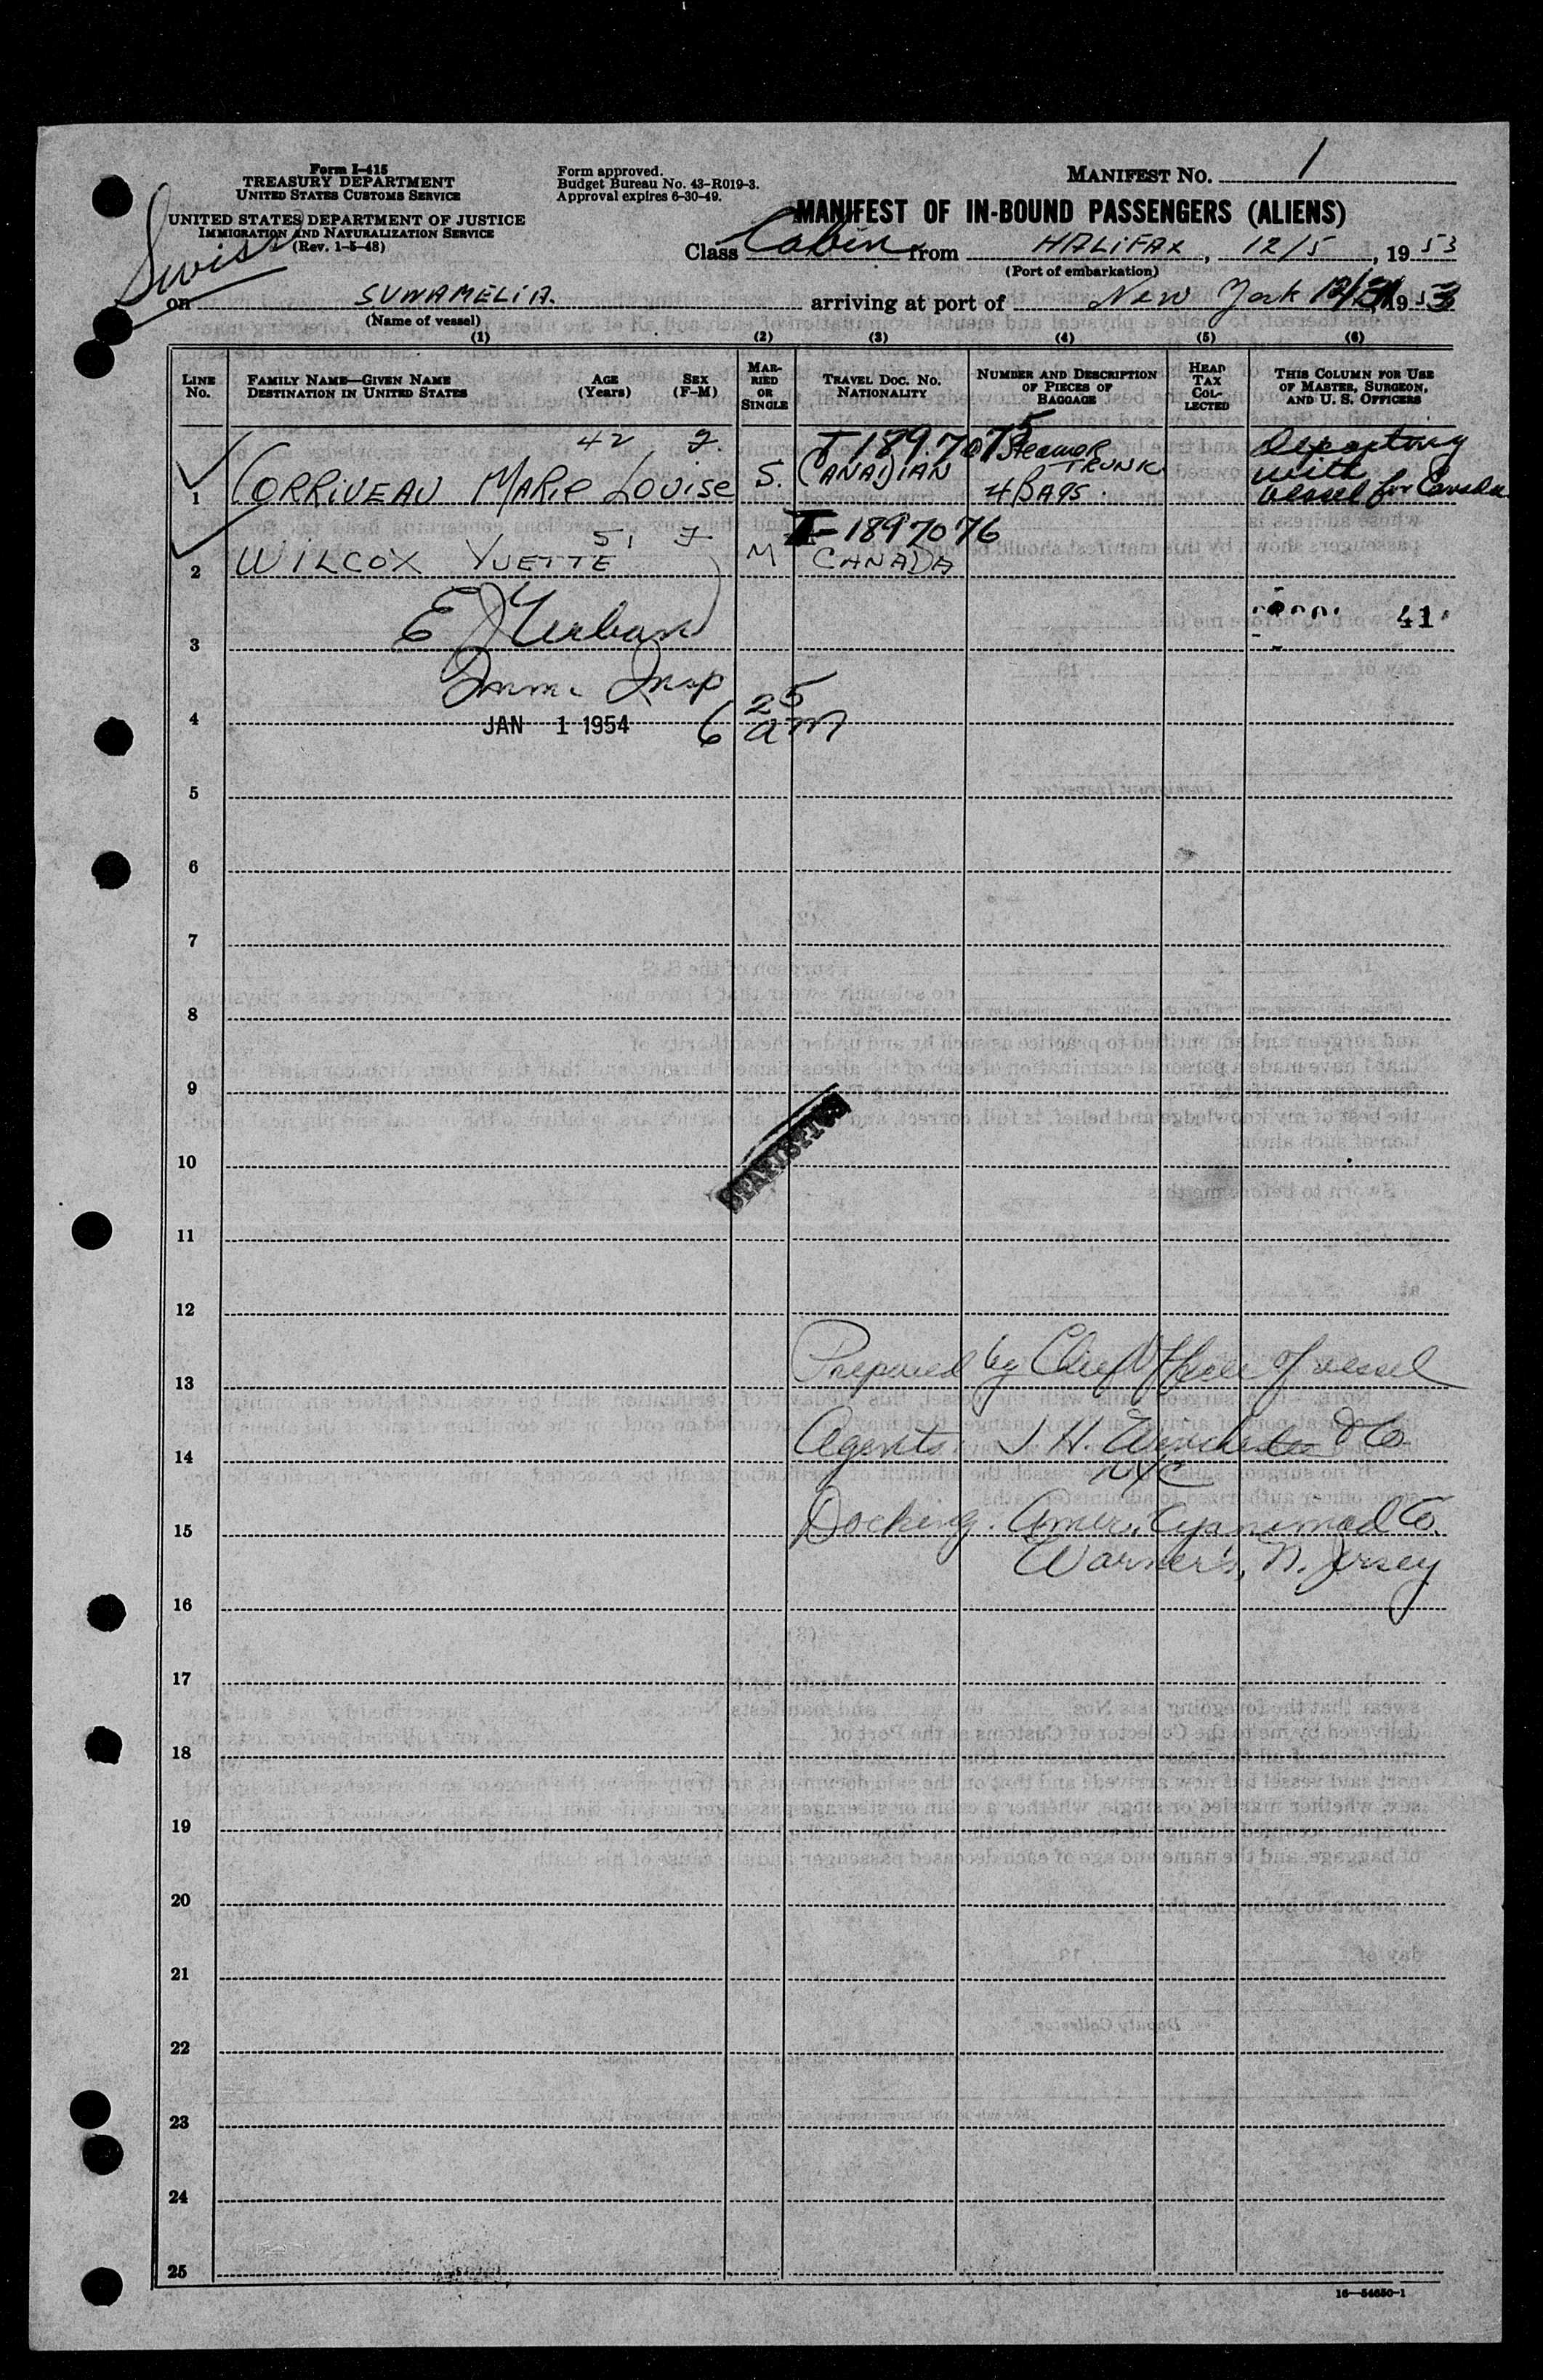 Form I-415
TREASURY DEPARTMENT
UNITED STATES CUSTOMS SERVICE
UNITED STATES DEPARTMENT OF JUSTICE
IMMIGRATION AND NATURALIZATION SERVICE
(Rev. 1-5-48)
Swiss
Form approved.
Budget Bureau No. 43-R019-3.
Approval expires 6-30-49.
MANIFEST NO. 1
MANIFEST OF IN-BOUND PASSENGERS (ALIENS)
Class Cabin from HALIFAX, 12/5, 1953
(Port of embarkation)
on SUNAMELIA. arriving at port of New York 12/31 1953
(Name of vessel)
(1) (2) (3) (4) (5) (6)
LINE No. FAMILY NAME—GIVEN NAME DESTINATION IN UNITED STATES AGE (Years) SEX (F-M) MARRIED OR SINGLE TRAVEL DOC. NO. NATIONALITY NUMBER AND DESCRIPTION OF PIECES OF BAGGAGE HEAD TAX COLLECTED THIS COLUMN FOR USE OF MASTER, SURGEON, AND U. S. OFFICERS
42 F. I 189.7075 Steamer TRUNK Departing with
1 CORRIVEAU MARIE LOUISE S. CANADIAN 4 BAGS. vessel for Canada
51 F I-1897076
2 WILCOX YVETTE M CANADA
3 E J 41
4 Imm. Insp
JAN 1 1954 6 25 am
5
6
7
8
9
10 STATISTICS
11
12
13 Prepared by Chief Officer of vessel
14 Agents J H. Winchester & Co
NYC
15 Docking. Amer. Cyanimad Co.
Warners, N. Jersey
16
17
18
19
20
21
22
23
24
25
16—54650-1